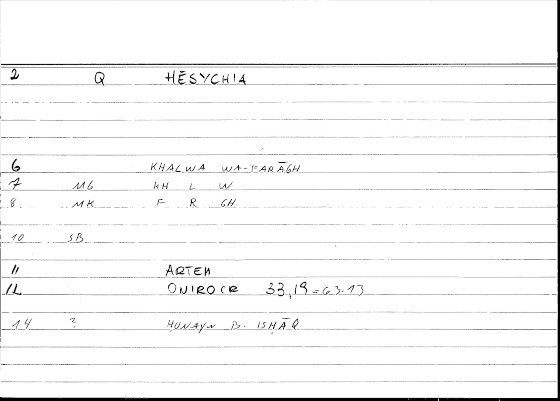 2 Q HĒSYCHIA
6 KHALWA WA-FARĀGH
7 MB KH L W
8 MK F R GH
10 SB
11 ARTEM
12 ONIROCR 33,19=63.13
14 ? ḤUNAYN B. ISḤĀQ